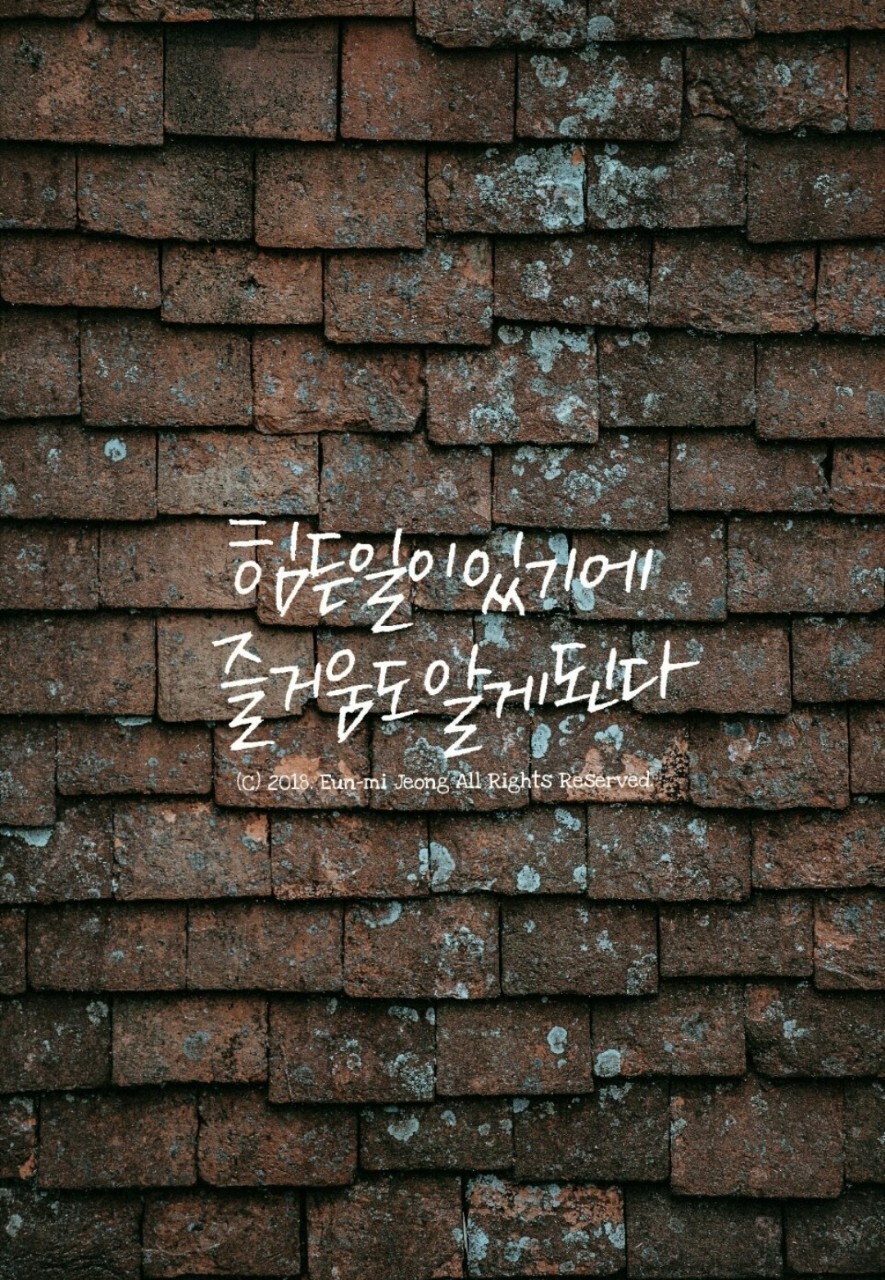 힘든일이있기에
즐거움도알게된다
(C) 2018. Eun-mi Jeong All Rights Reserved